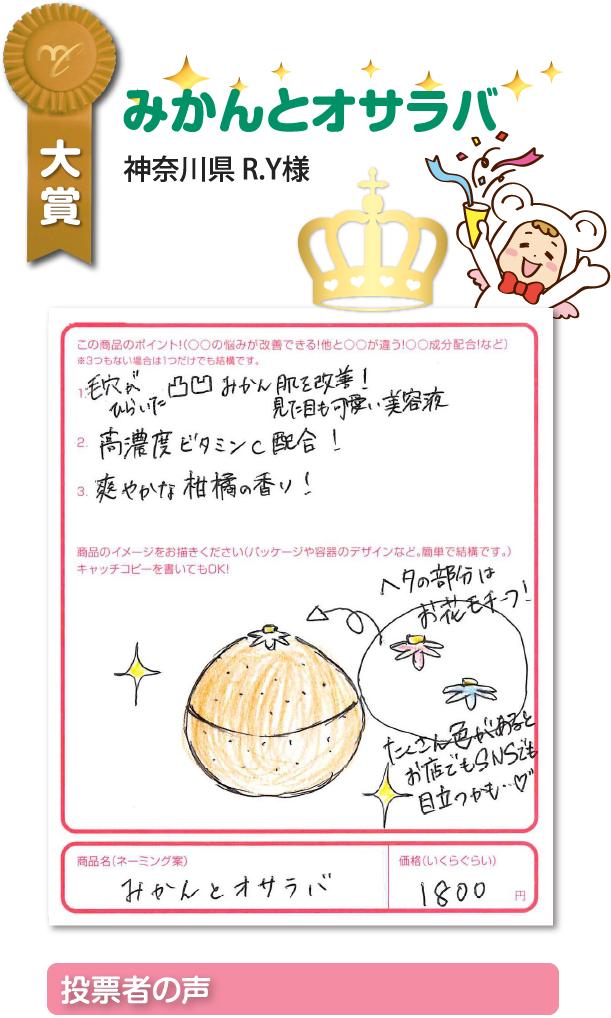 大賞
みかんとオサラバ
神奈川県 R.Y様
この商品のポイント!(〇〇の悩みが改善できる!他と〇〇が違う!〇〇成分配合!など)
※3つもない場合は1つだけでも結構です。
1. 毛穴がひらいた凸凹みかん肌を改善!
見た目も可愛い美容液
2. 高濃度ビタミンC配合!
3. 爽やかな柑橘の香り!
商品のイメージをお描きください(パッケージや容器のデザインなど。簡単で結構です。)
キャッチコピーを書いてもOK!
ヘタの部分は
お花モチーフ!
たくさん色があると
お店でもSNSでも
目立つかも…♡
商品名(ネーミング案)
みかんとオサラバ
価格(いくらぐらい)
1800 円
投票者の声